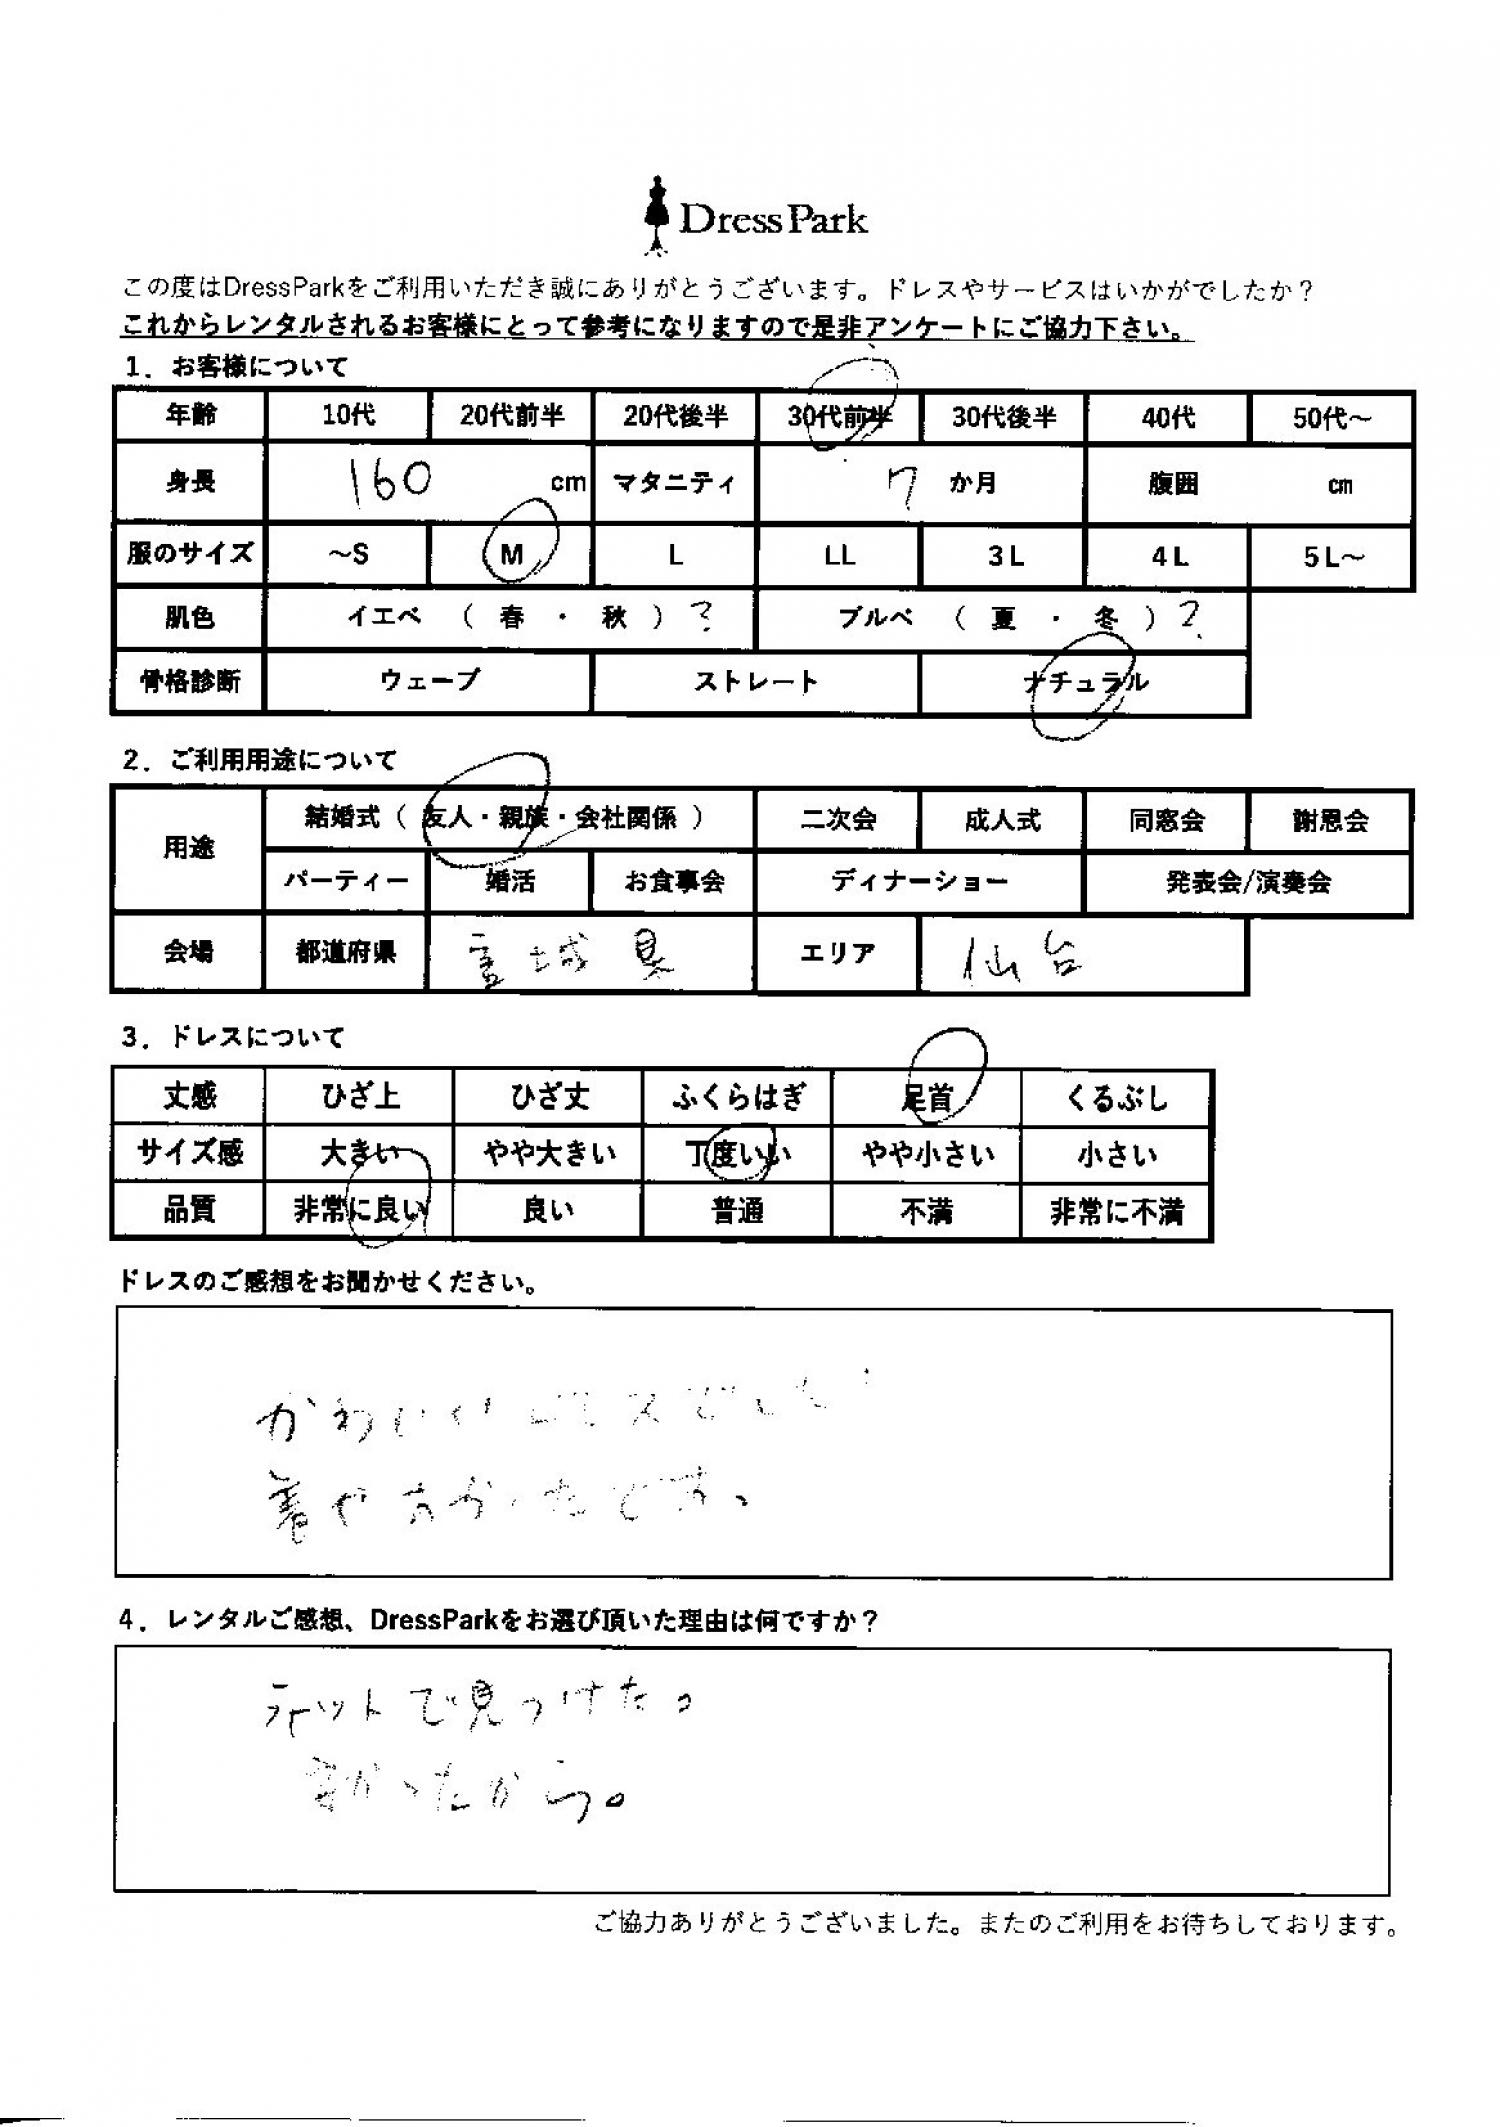 Dress Park
この度はDressParkをご利用いただき誠にありがとうございます。ドレスやサービスはいかがでしたか？
これからレンタルされるお客様にとって参考になりますので是非アンケートにご協力下さい。
1．お客様について
年齢 10代 20代前半 20代後半 30代前半 30代後半 40代 50代～
身長 160 cm マタニティ 7 か月 腹囲 cm
服のサイズ ～S M L LL 3L 4L 5L～
肌色 イエベ （ 春 ・ 秋 ） ? ブルベ （ 夏 ・ 冬 ） ?
骨格診断 ウェーブ ストレート ナチュラル
2．ご利用用途について
用途 結婚式（ 友人・親族・会社関係 ） 二次会 成人式 同窓会 謝恩会
パーティー 婚活 お食事会 ディナーショー 発表会/演奏会
会場 都道府県 宮城県 エリア 仙台
3．ドレスについて
丈感 ひざ上 ひざ丈 ふくらはぎ 足首 くるぶし
サイズ感 大きい やや大きい 丁度いい やや小さい 小さい
品質 非常に良い 良い 普通 不満 非常に不満
ドレスのご感想をお聞かせください。
かわいいドレスでした
着やすかったです。
4．レンタルご感想、DressParkをお選び頂いた理由は何ですか？
ネットで見つけた。
安かったから。
ご協力ありがとうございました。またのご利用をお待ちしております。